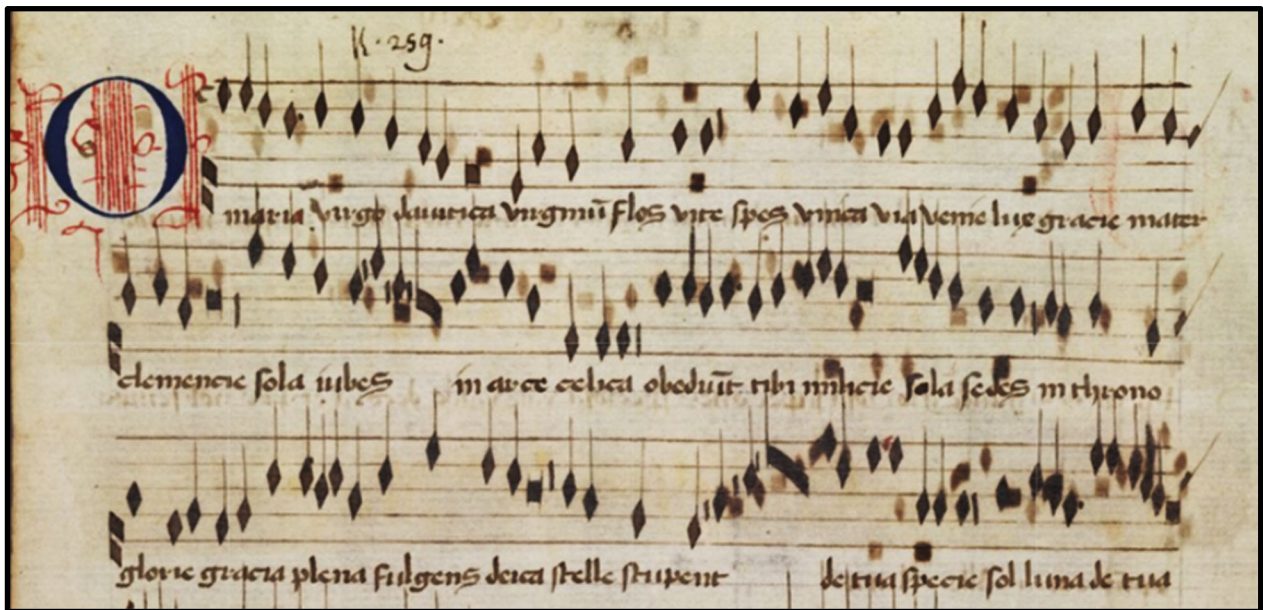 K · 259 ·
O maria virgo dauitica virginū flos vite spes vnica via venie lux gracie mater
clemencie sola iubes in arce celica obediūt tibi milicie sola sedes in throno
glorie gracia plena fulgens deica stelle stupent de tua specie sol luna de tua